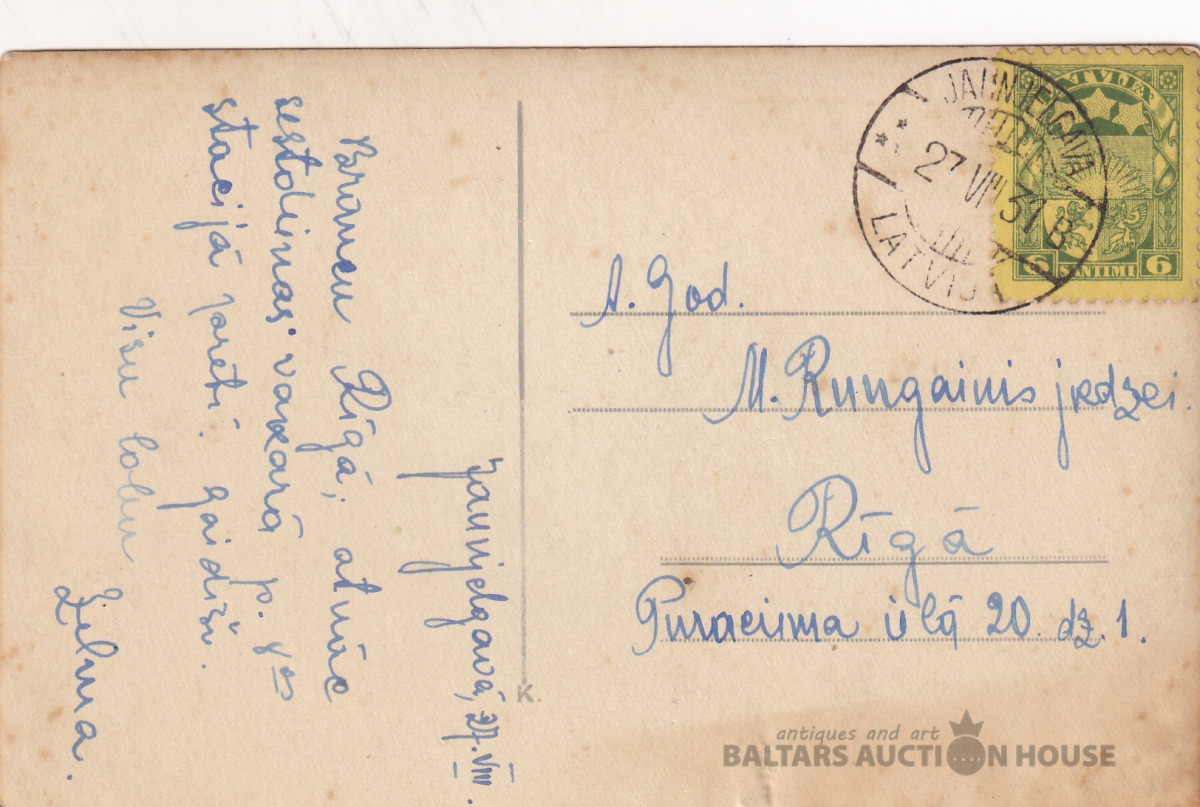 Jaunjelgavā, 27. VIII.
Braucu Rīgā, atnāc
sestdienas vakarā p. 8os
stacijā pretī. gaidīšu.
Visu labu
Zelma.
JAUNJELGAVA
27 VIII 31 B
LATVIJA
LATVIJA
6 SANTIMI 6
A. God.
M. Rungainis jkdzei.
Rīgā
Puraciema ielā 20. dz. 1.
K.
antiques and art
BALTARS AUCTION HOUSE